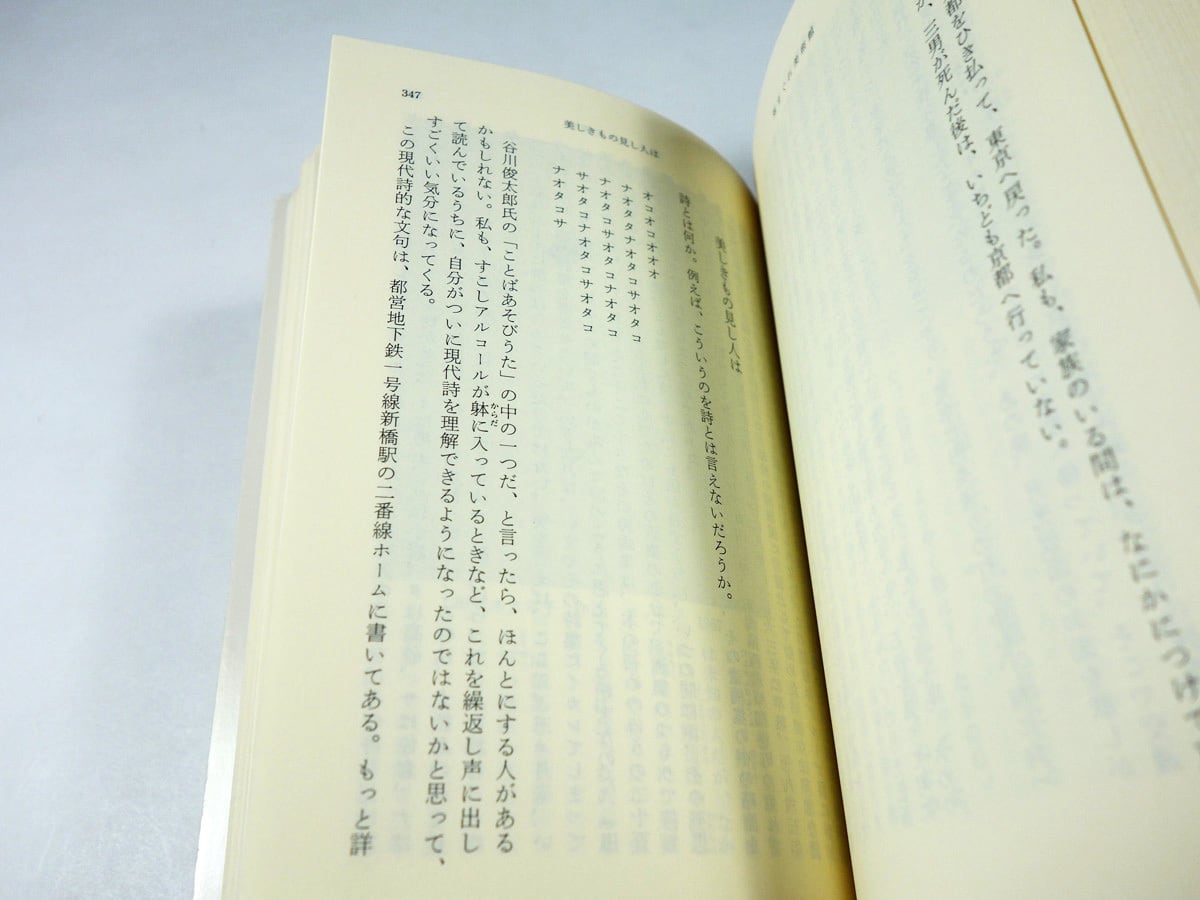 都をひき払って、東京へ戻った。私も、家族のいる間は、なにかにつけて
が、三男が死んだ後は、いちども京都へ行っていない。
347
美しきもの見し人は
美しきもの見し人は
詩とは何か。例えば、こういうのを詩とは言えないだろうか。
オコオコオオオ
ナオタタナオタコサオタコ
ナオタコサオタコナオタコ
サオタコナオタコサオタコ
ナオタコサ
谷川俊太郎氏の「ことばあそびうた」の中の一つだ、と言ったら、ほんとにする人がある
かもしれない。私も、すこしアルコールが躰に入っているときなど、これを繰返し声に出し
からだ
て読んでいるうちに、自分がついに現代詩を理解できるようになったのではないかと思って、
すごくいい気分になってくる。
この現代詩的な文句は、都営地下鉄一号線新橋駅の二番線ホームに書いてある。もっと詳